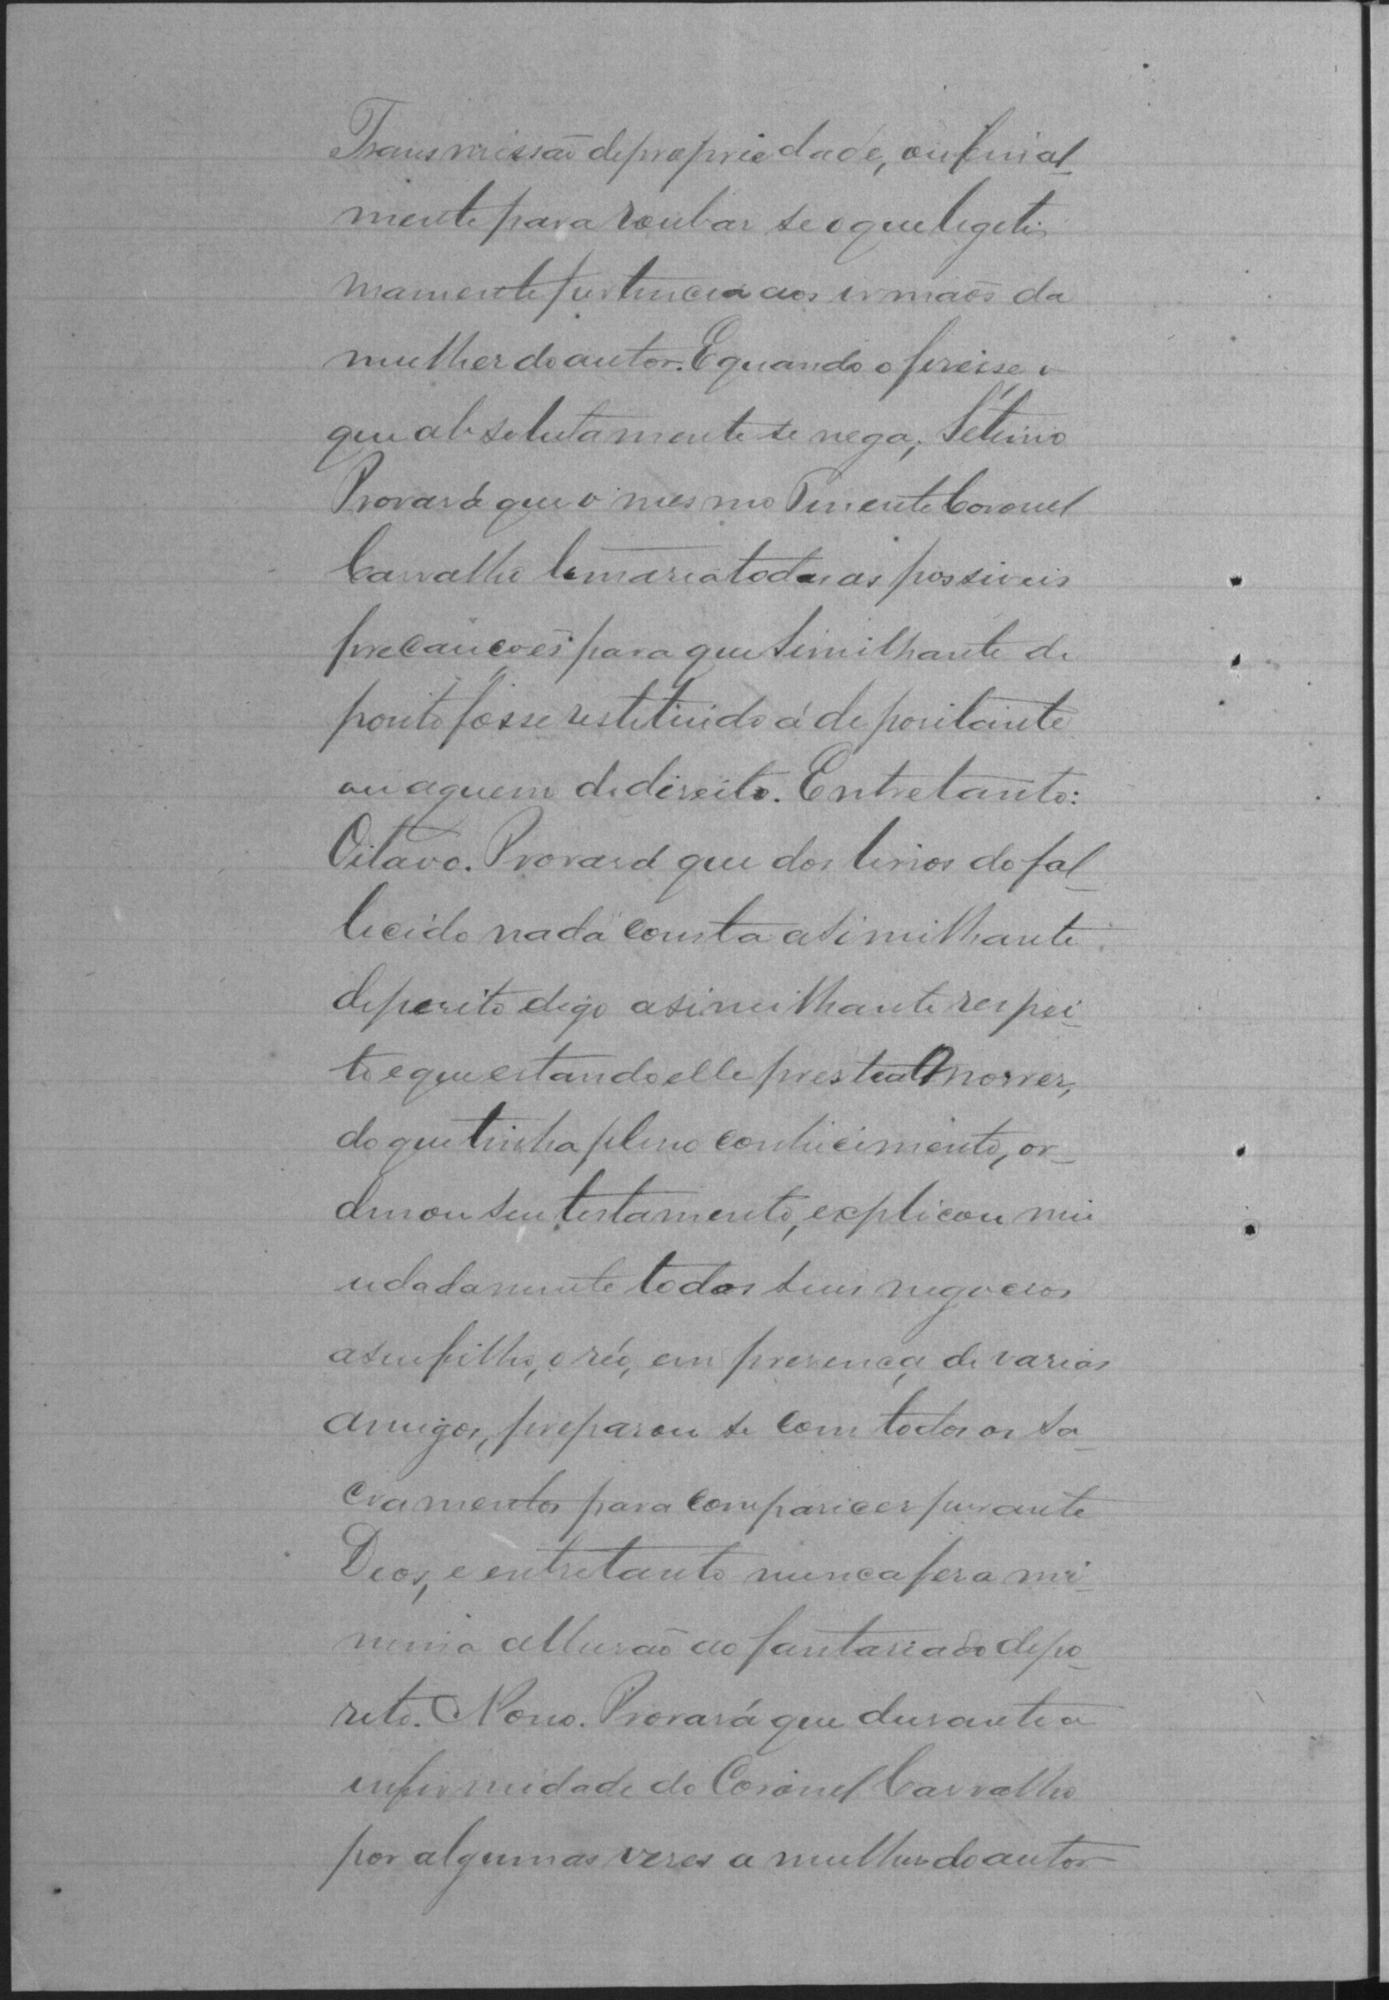 Transmissaõ de propriedade, ou final-
mente para roubar se o que legeti-
mamente pertencia aos irmaõs da
mulher do autor. E quando o fizesse o
que absolutamente se nega, Setimo
Provará que o mesmo Tenente Coronel
Carvalho tomaria todas as possiveis
precaucoẽs para que similhante de
posito fosse restetuido á depositante
ou aquem de direito. Entretanto:
Oitavo. Provará que dos livros do fal-
lecido nada consta a similhante
deposito digo a similhante respei-
to e que estando elle prestes a morrer,
do que tinha pleno conhecimento, or-
denou seu testamento, explicou mi
udadamente todos seus negocios
a seu filho, o réo, em presença de varios
amigos, preparou se com todos os sa-
cramentos para comparicer perante
Deos, e entretanto nunca fez a mi-
nima allusaõ ao fantasiado depo-
zito. Nono. Provará que durante a
infermidade do Coronel Carvalho
por algumas vezes a mulher do autor